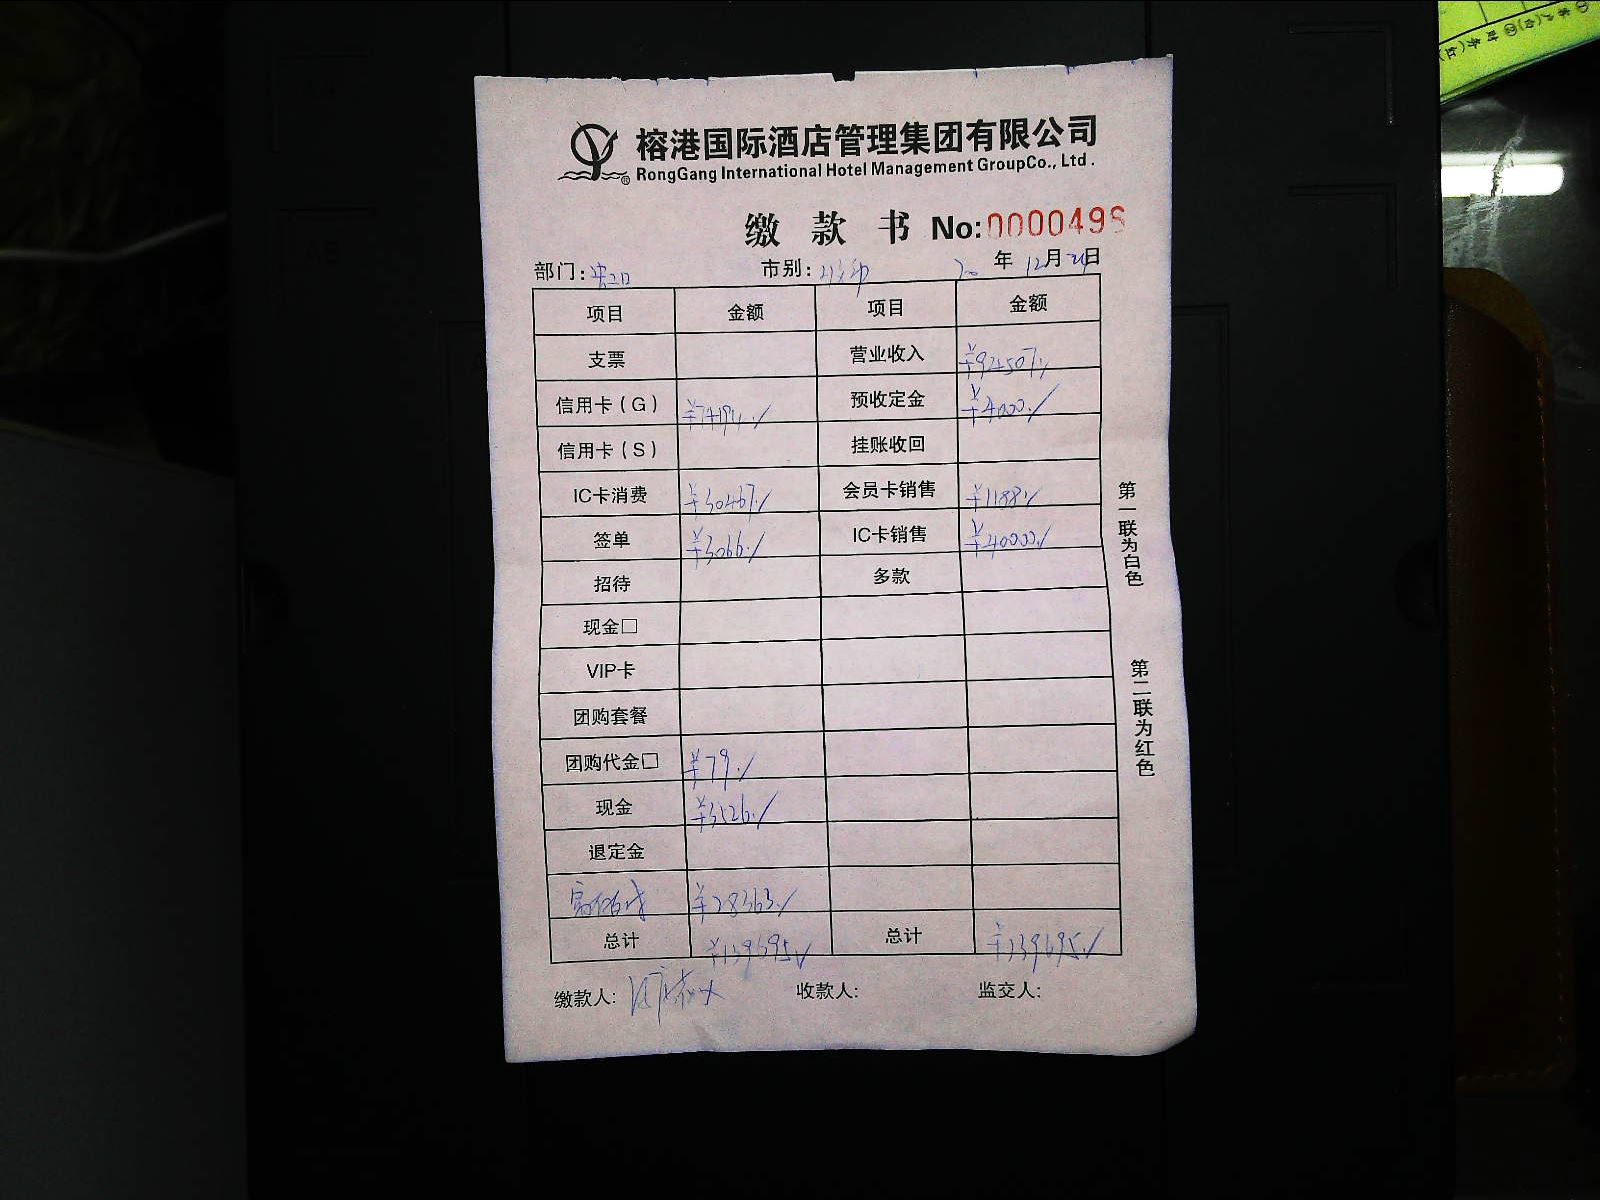 榕港国际酒店管理集团有限公司
RongGang International Hotel Management GroupCo., Ltd.
缴款书 No:
部门: 市别: 年 12月24日
项目 金额 项目 金额
支票 营业收入 ¥94507.
信用卡(G) ¥74194. 预收定金 ¥4000.
信用卡(S) 挂账收回
IC卡消费 ¥30467. 会员卡销售 ¥1188.
签单 ¥3066. IC卡销售 ¥40000.
招待 多款
现金□
VIP卡
团购套餐
团购代金□ ¥79.
现金 ¥3526.
退定金
¥28363.
总计 ¥139695. 总计 ¥139695.
缴款人: 收款人: 监交人:
第一联为白色
第二联为红色